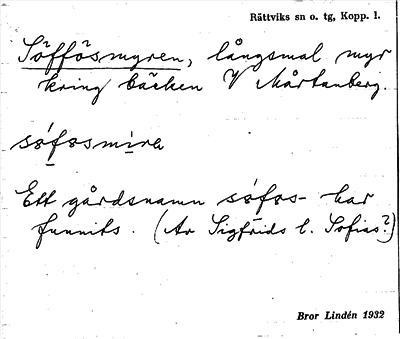 Rättviks sn o. tg, Kopp. l.
Söffösmyren, långsmal myr
kring bäcken V Mårtanberg.
sǿfosmìra
Ett gårdsnamn sǿfos- har
funnits. (Av Sigfrids l. Sofias?)
Bror Lindén 1932